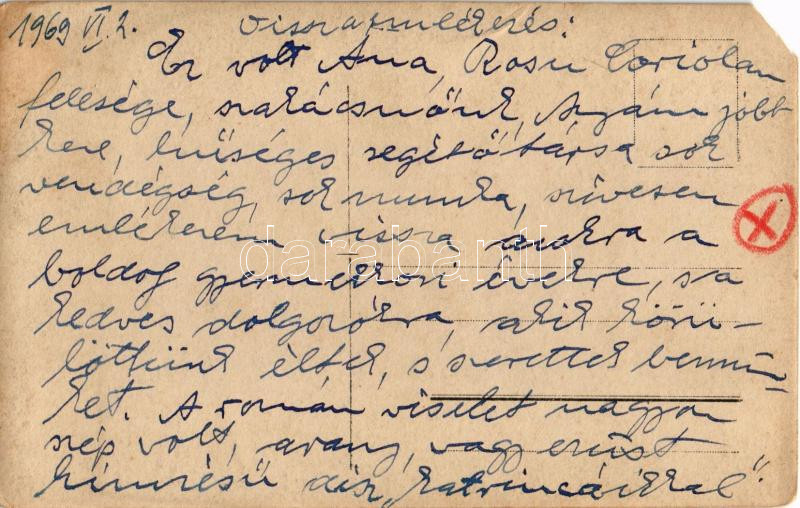 1969 VI. 2. Visszaemlékezés:
Ez volt Ana, Rosu Coriolan
felesége, szakácsnőnk, Anyám jobb
keze, hűséges segítőtársa sok
vendégség, sok munka, szívesen
emlékezem vissza azokra a
boldog gyermekkori évekre, s a
kedves dolgozókra, akik körü-
löttünk éltek, s szerettek bennün-
ket. A román viselet nagyon
szép volt, arany, vagy ezüst
hímzésű dísz „katrincáikkal".
darabanth